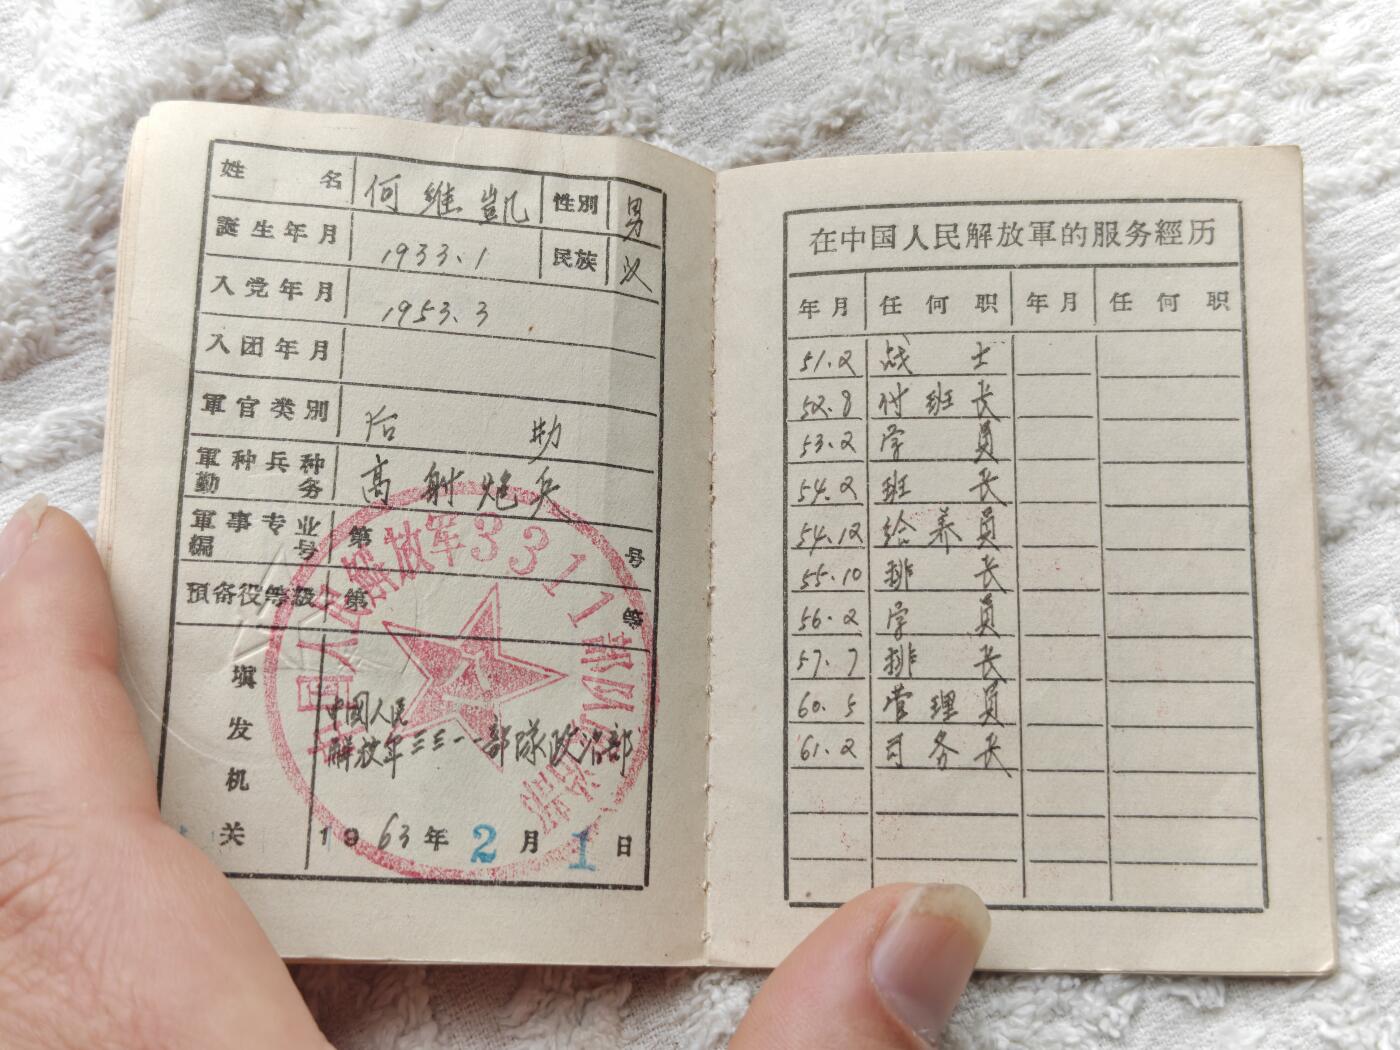 姓名 何維凱 性別 男
誕生年月 1933.1 民族 汉
入党年月 1953.3
入团年月
軍官类別 后勤
軍种兵种
勤务 高射炮兵
軍事专业
編号 第 号
預备役等級 第 等
中国人民解放军3311部队政治部
填发机关
中國人民
解放军三三一一部隊政治部
1963年2月1日
在中国人民解放軍的服务經历
年月 任何职 年月 任何职
51.2 战士
52.8 付班长
53.2 学员
54.2 班长
54.12 给养员
55.10 排长
56.2 学员
57.7 排长
60.5 管理員
61.2 司务长